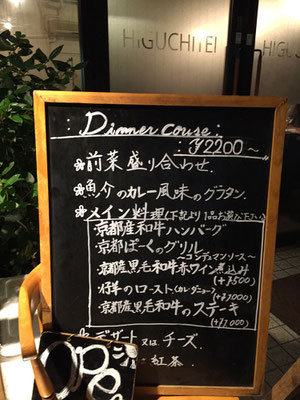 HIGUCHITEI
HIGUC
Dinner couse:
¥2200~
前菜盛り合わせ.
魚介のカレー風味のグラタン.
メイン料理(下記より1品お選び下さい)
京都産和牛ハンバーグ
京都ぽーくのグリル
~コンディマンソース~
京都産黒毛和牛赤ワイン煮込み
(+¥500)
仔羊のロースト(カレーダニョー)
(+¥1000)
京都産黒毛和牛のステーキ
(+¥1000)
デザート又はチーズ.
紅茶.